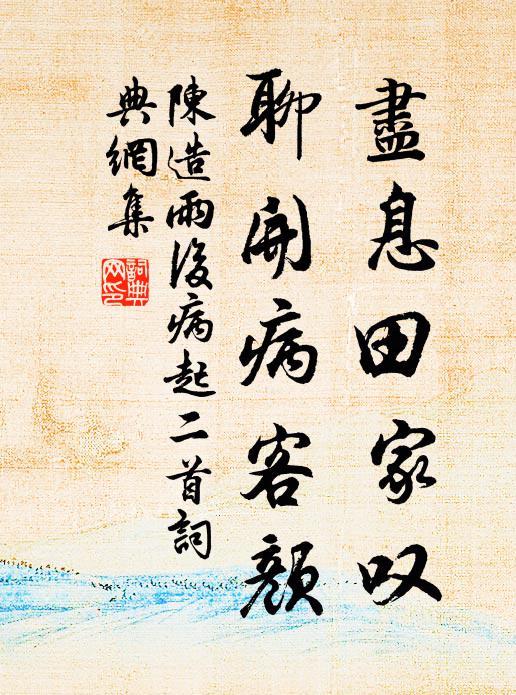 盡息田家叹
聊開病客顏
陳造雨後病起二首詞
典網集
詞典網印